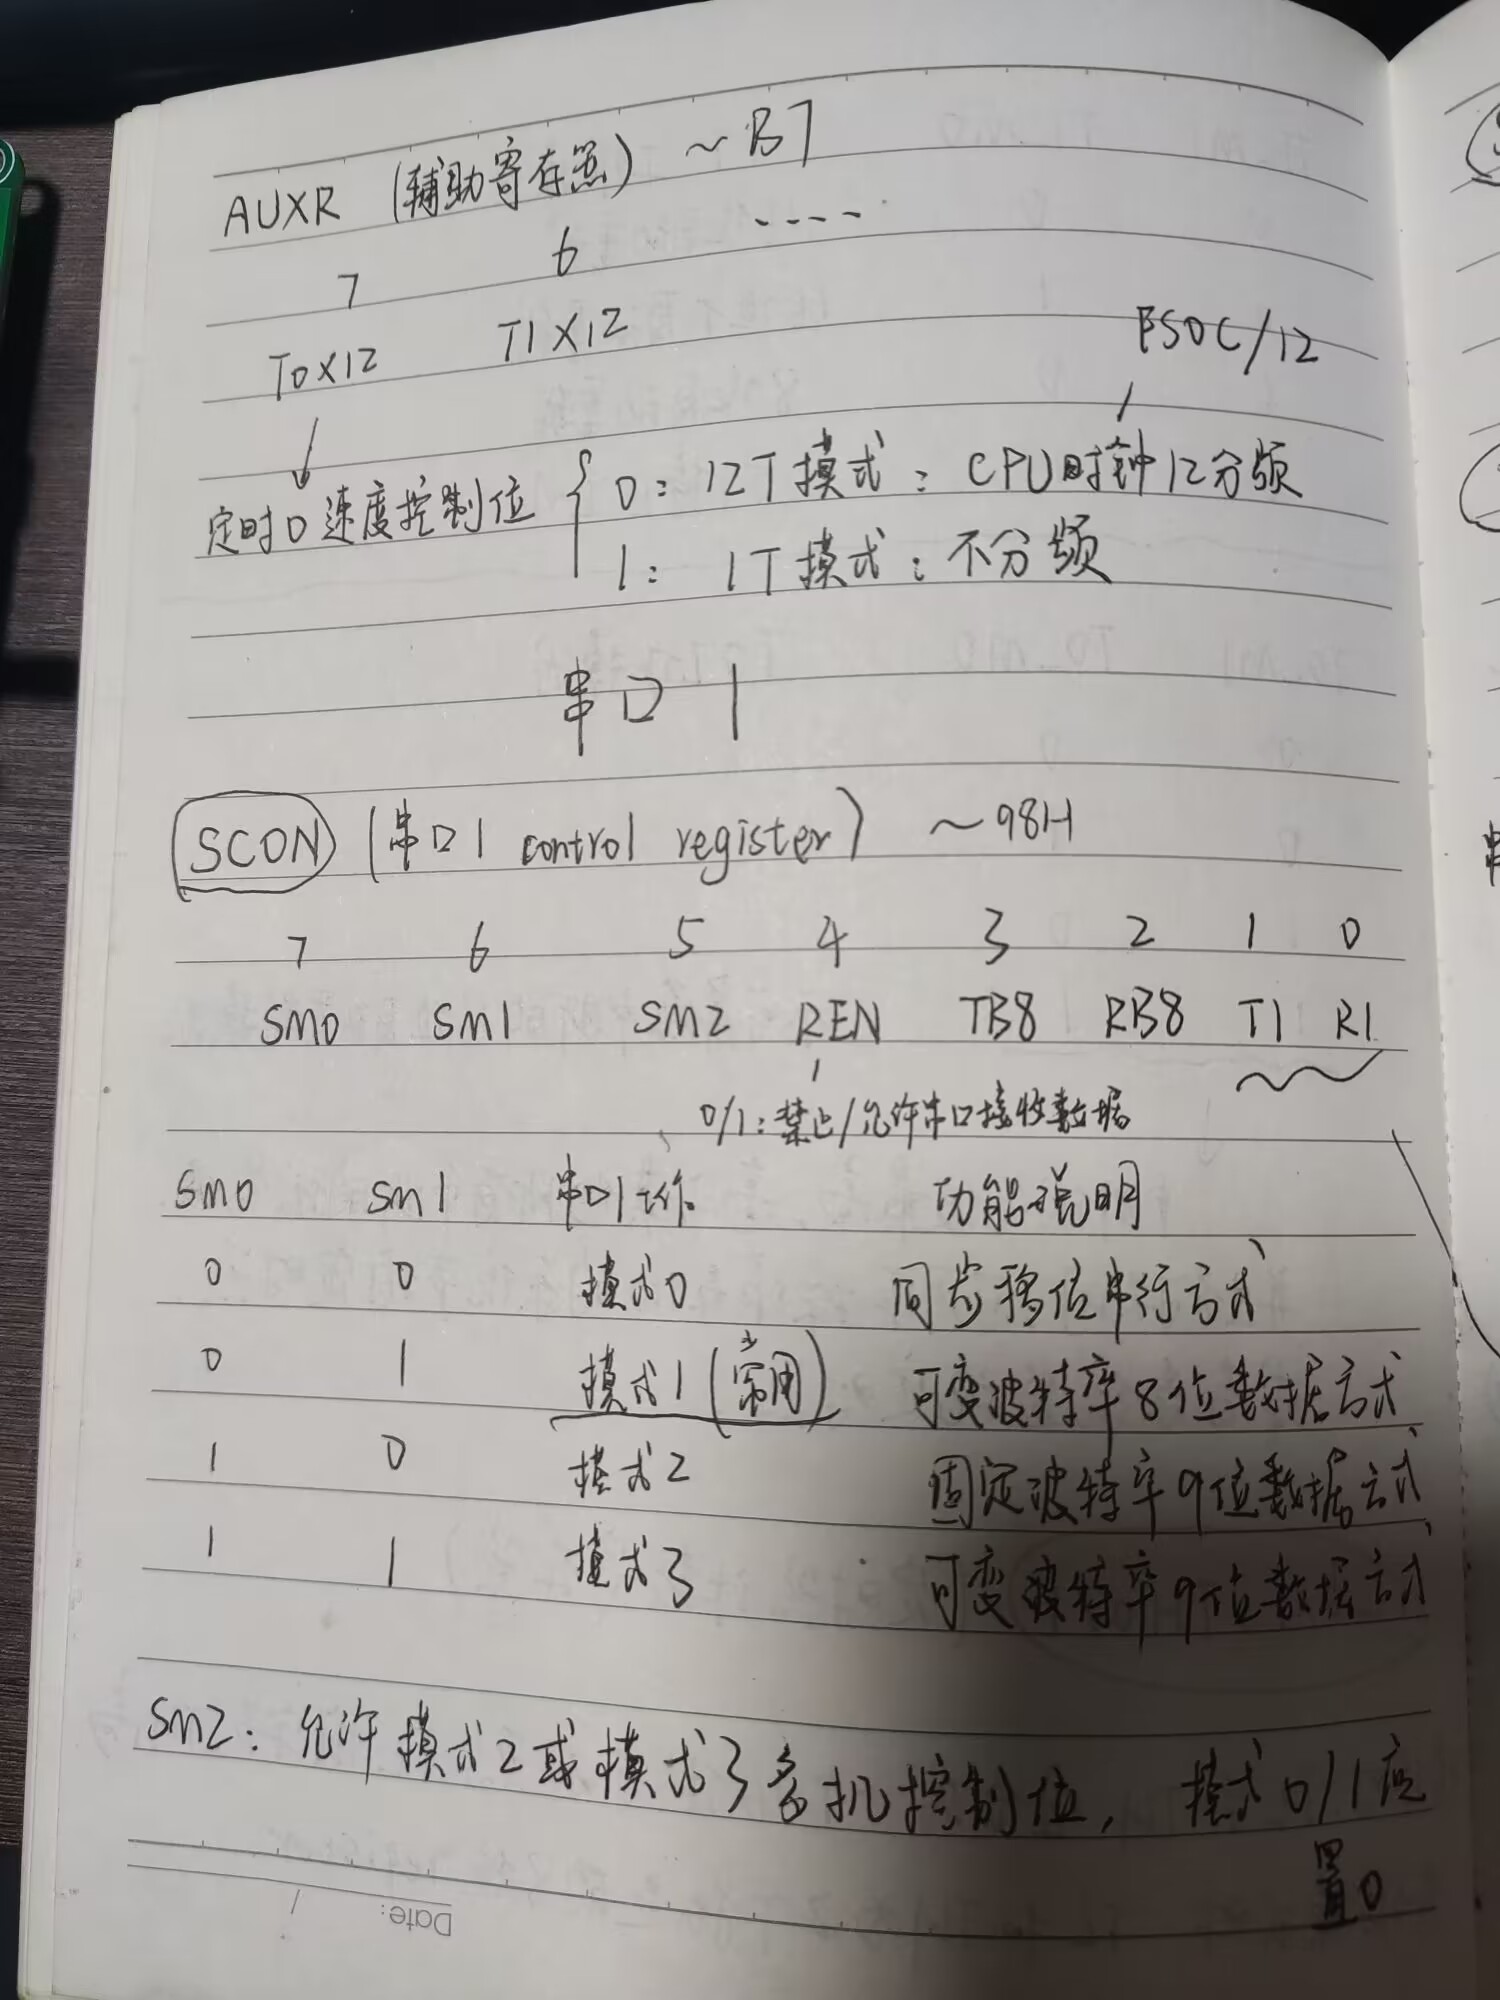 AUXR (辅助寄存器) ~B7
7 6 ----
T0X12 T1X12 FSOC/12
定时0速度控制位 { 0: 12T模式: CPU时钟12分频
1: 1T模式: 不分频
串口 1
SCON (串口1 control register) ~98H
7 6 5 4 3 2 1 0
SM0 SM1 SM2 REN TB8 RB8 T1 R1
0/1:禁止/允许串口接收数据
SM0 SM1 串口1工作 功能说明
0 0 模式0 同步移位串行方式
0 1 模式1(常用) 可变波特率8位数据方式
1 0 模式2 固定波特率9位数据方式
1 1 模式3 可变波特率9位数据方式
SM2: 允许模式2或模式3多机控制位, 模式0/1应
置0
Date: /